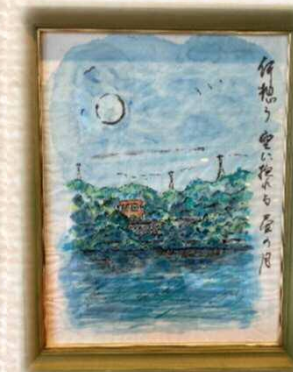 何想う 空に揺れる 昼の月